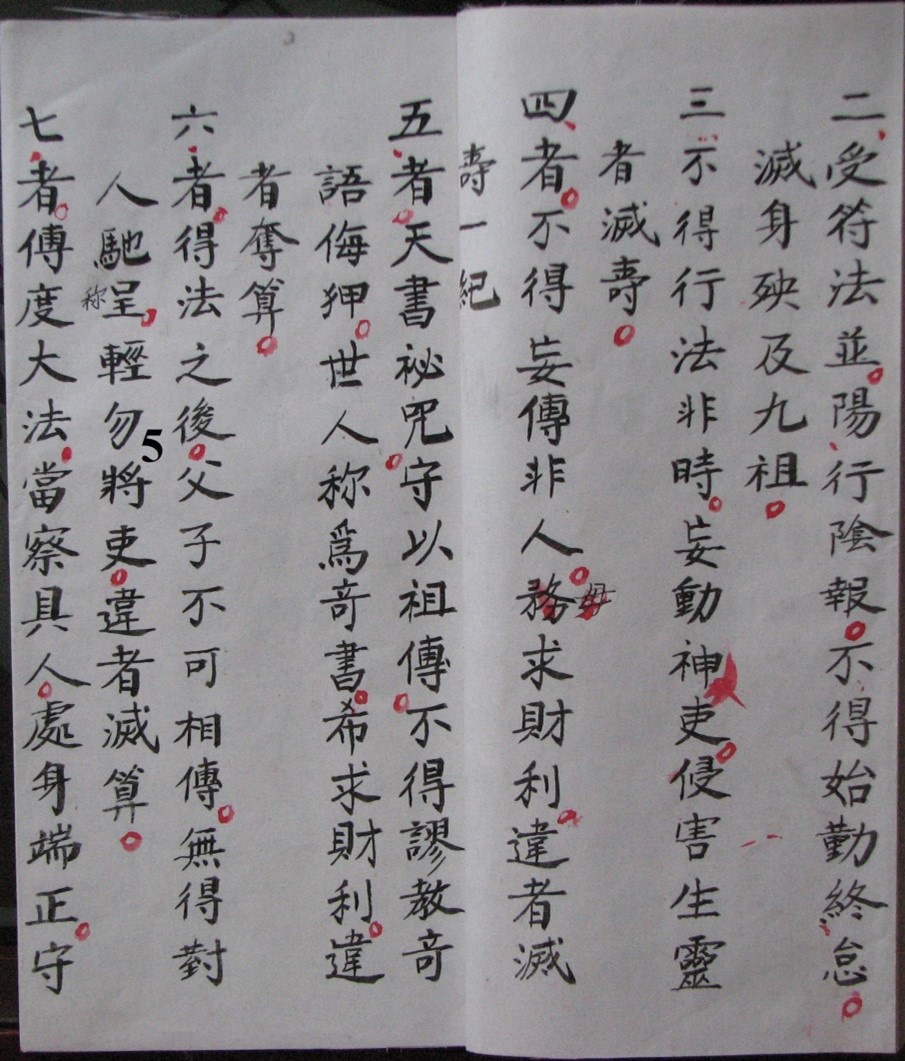 二受符法並陽行陰報不得始勤終怠
滅身殃及九祖
三不得行法非時妄動神吏侵害生靈
者滅壽
四者不得妄傳非人務求財利違者滅
毋
壽一紀
五者天書祕咒守以祖傳不得謬教奇
語侮狎世人称爲奇書希求財利違
者奪算
六者得法之後父子不可相傳無得對
人馳呈輕勿將吏違者滅算
称
5
七者傳度大法當察具人處身端正守